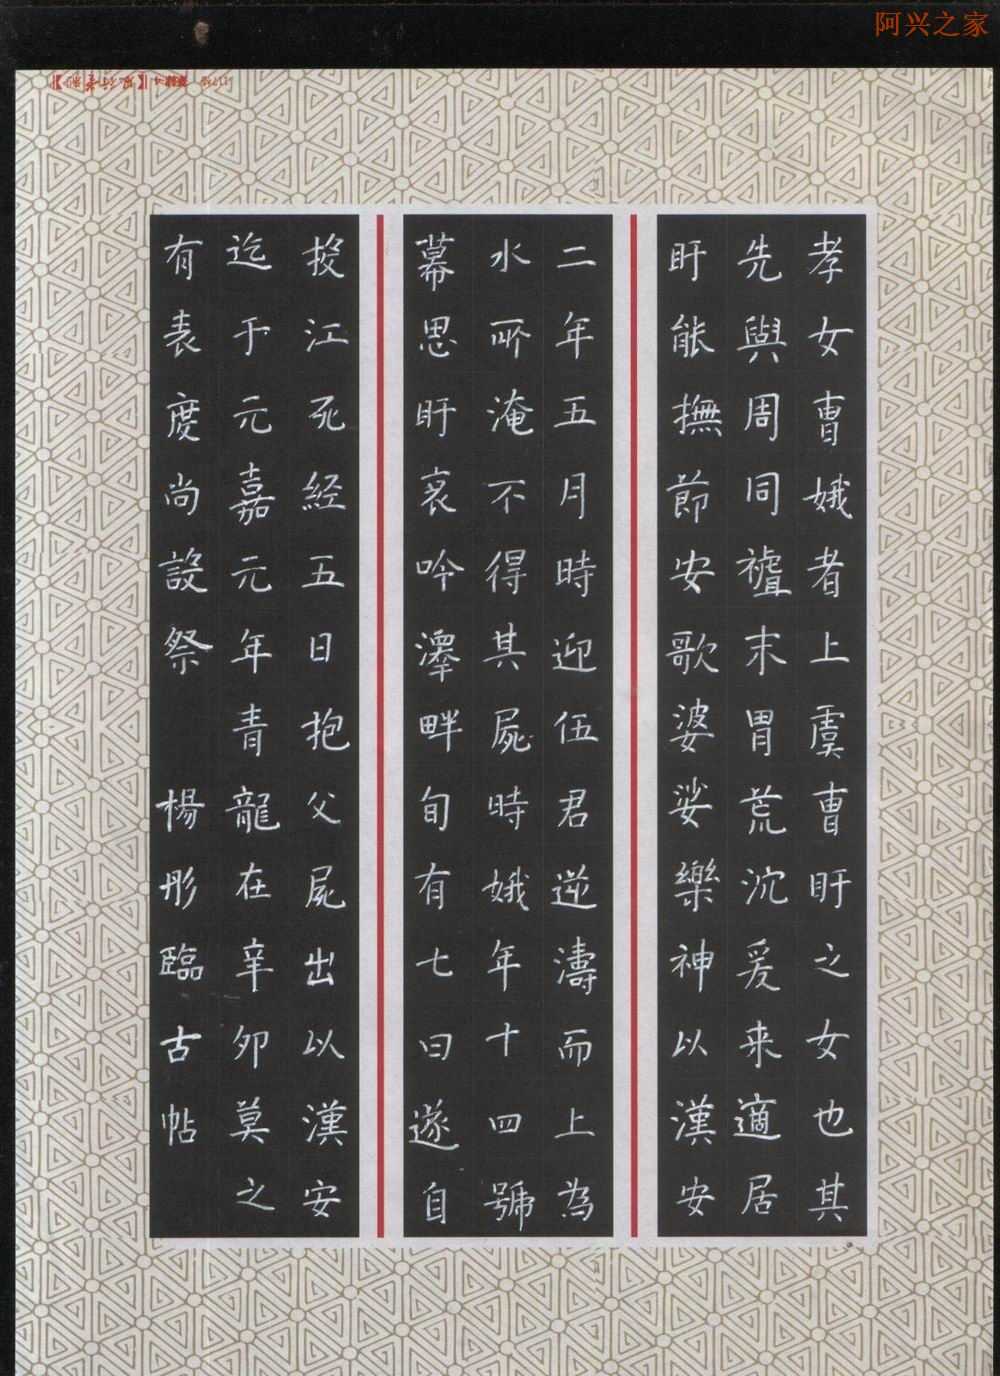 阿兴之家
孝女曺娥者上虞曺盱之女也其
先與周同禮末胄荒沉爰来適居
盱能撫節安歌婆娑樂神以漢安
二年五月時迎伍君逆濤而上為
水所淹不得其屍時娥年十四號
慕思盱哀吟澤畔旬有七日遂自
投江死経五日抱父屍出以漢安
迄于元嘉元年青龍在辛卯莫之
有表度尚設祭
楊彤臨古帖